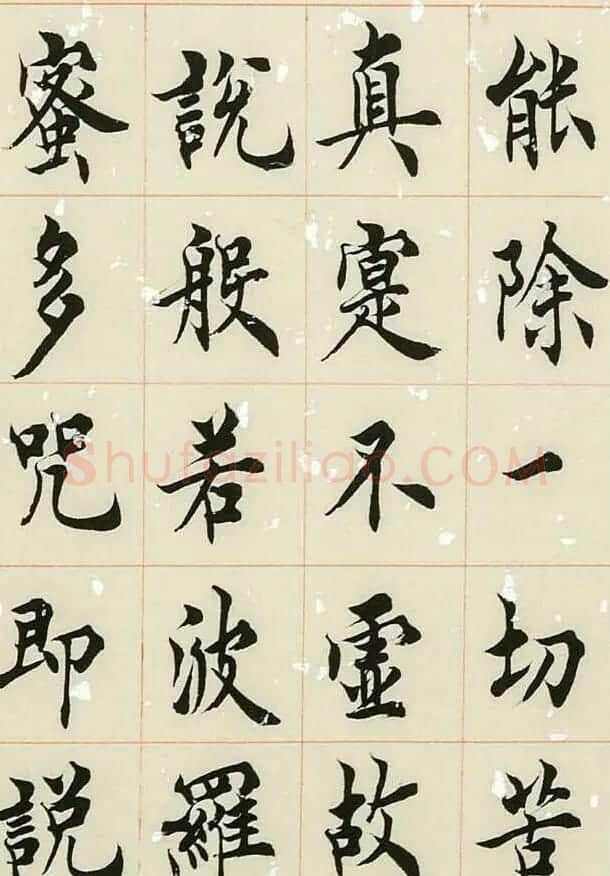 能除一切苦
真寔不虛故
說般若波羅
蜜多咒即說
Shufaziliao.COM